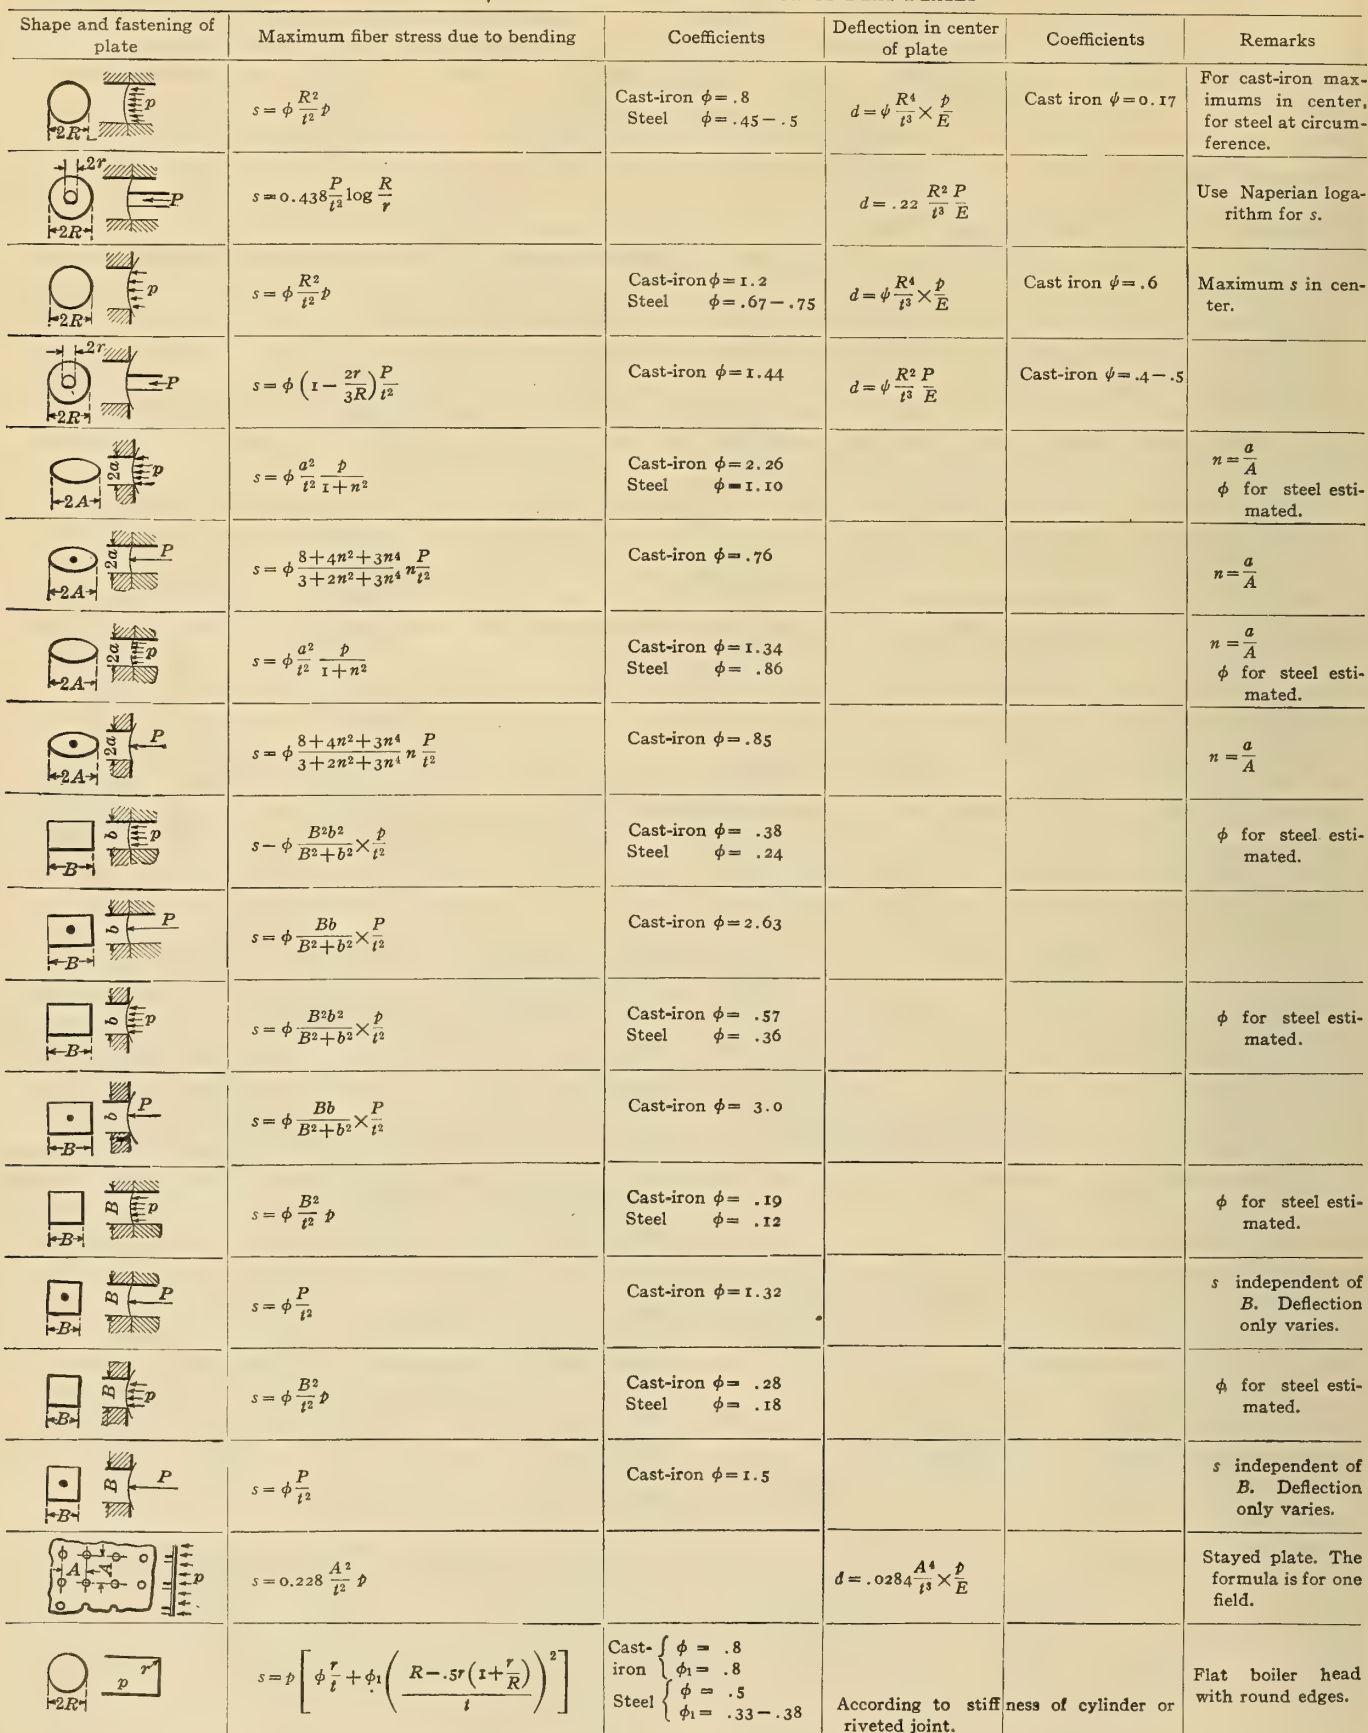 Shape and fastening of plate | Maximum fiber stress due to bending | Coefficients | Deflection in center of plate | Coefficients | Remarks
2R p | s = ϕ R²/t² p | Cast-iron ϕ = .8 Steel ϕ = .45 – .5 | d = ψ R⁴/t³ × p/E | Cast iron ψ = 0.17 | For cast-iron maximums in center, for steel at circumference.
2r 2R P | s = 0.438 P/t² log R/r | | d = .22 R²/t³ P/E | | Use Naperian logarithm for s.
2R p | s = ϕ R²/t² p | Cast-iron ϕ = 1.2 Steel ϕ = .67 – .75 | d = ψ R⁴/t³ × p/E | Cast iron ψ = .6 | Maximum s in center.
2r 2R P | s = ϕ (1 – 2r/3R) P/t² | Cast-iron ϕ = 1.44 | d = ψ R²/t³ P/E | Cast-iron ψ = .4 – .5
2A 2a p | s = ϕ a²/t² p/(1+n²) | Cast-iron ϕ = 2.26 Steel ϕ = 1.10 | | | n = a/A ϕ for steel estimated.
2A 2a P | s = ϕ (8+4n²+3n⁴)/(3+2n²+3n⁴) n P/t² | Cast-iron ϕ = .76 | | | n = a/A
2A 2a p | s = ϕ a²/t² p/(1+n²) | Cast-iron ϕ = 1.34 Steel ϕ = .86 | | | n = a/A ϕ for steel estimated.
2A 2a P | s = ϕ (8+4n²+3n⁴)/(3+2n²+3n⁴) n P/t² | Cast-iron ϕ = .85 | | | n = a/A
B b p | s – ϕ B²b²/(B²+b²) × p/t² | Cast-iron ϕ = .38 Steel ϕ = .24 | | | ϕ for steel estimated.
B b P | s = ϕ Bb/(B²+b²) × P/t² | Cast-iron ϕ = 2.63
B b p | s = ϕ B²b²/(B²+b²) × p/t² | Cast-iron ϕ = .57 Steel ϕ = .36 | | | ϕ for steel estimated.
B b P | s = ϕ Bb/(B²+b²) × P/t² | Cast-iron ϕ = 3.0
B B p | s = ϕ B²/t² p | Cast-iron ϕ = .19 Steel ϕ = .12 | | | ϕ for steel estimated.
B B P | s = ϕ P/t² | Cast-iron ϕ = 1.32 | | | s independent of B. Deflection only varies.
B B p | s = ϕ B²/t² p | Cast-iron ϕ = .28 Steel ϕ = .18 | | | ϕ for steel estimated.
B B P | s = ϕ P/t² | Cast-iron ϕ = 1.5 | | | s independent of B. Deflection only varies.
A A p | s = 0.228 A²/t² p | | d = .0284 A⁴/t³ × p/E | | Stayed plate. The formula is for one field.
2R p r | s = p [ϕ r/t + ϕ₁ ((R – .5r (1 + r/R))/t)²] | Cast-iron { ϕ = .8 ϕ₁ = .8 Steel { ϕ = .5 ϕ₁ = .33 – .38 | According to stiffness of cylinder or riveted joint. | | Flat boiler head with round edges.